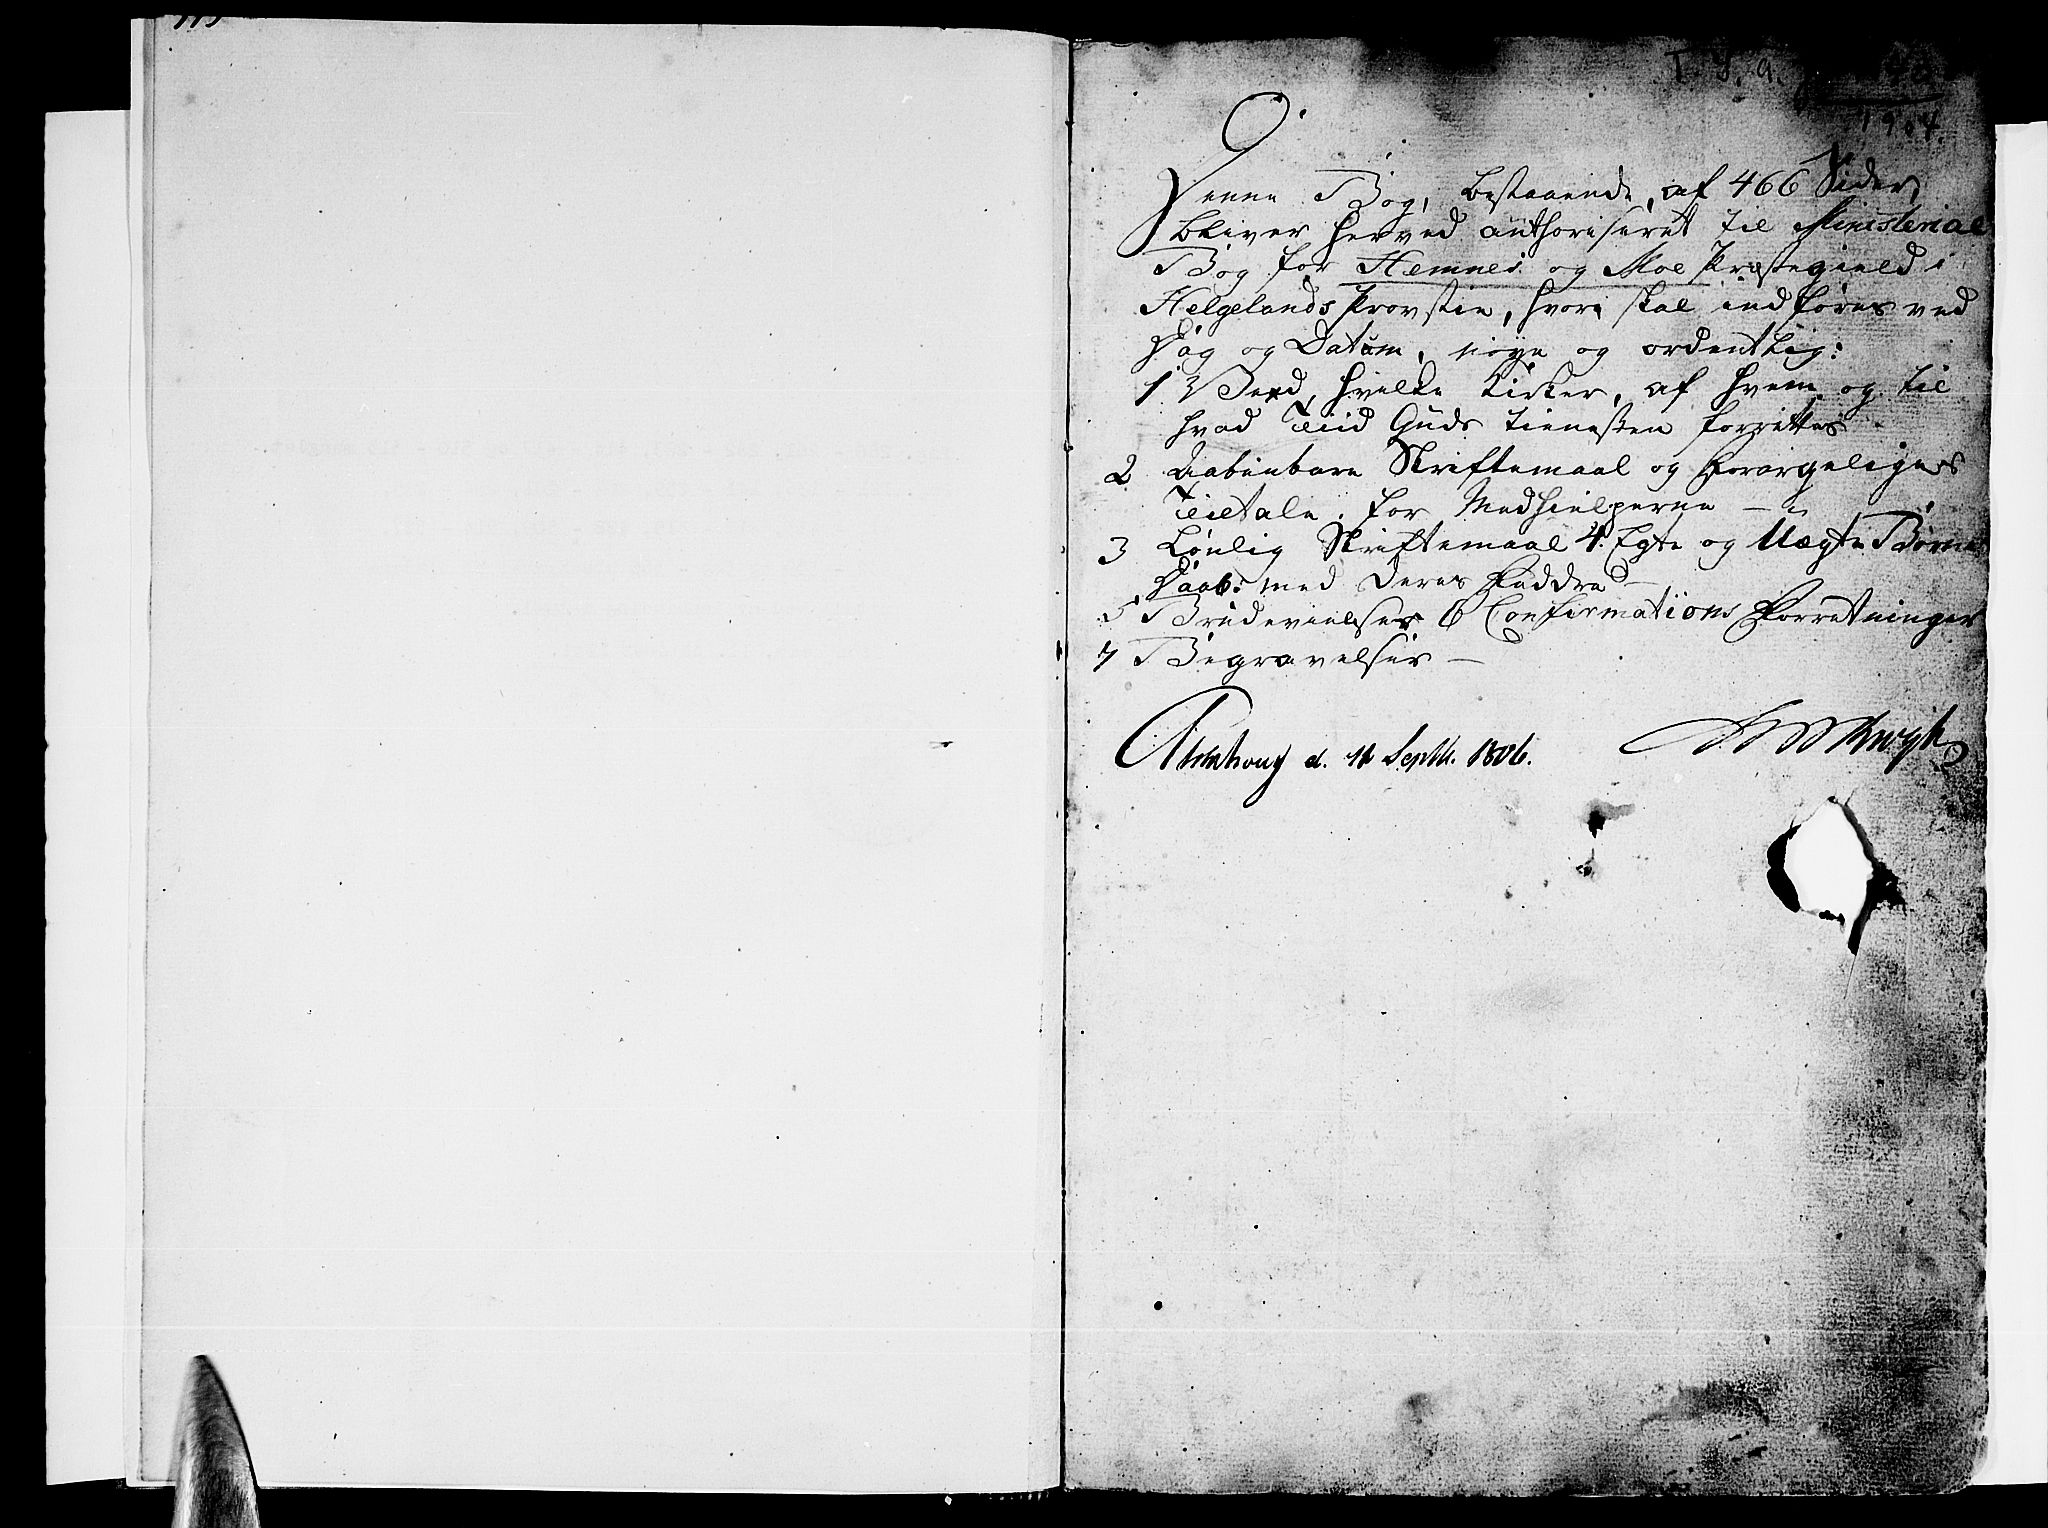 T. J. a.
1904
Denne Bog, bestaaende af 466 Sider,
bliver herved authoriseret til Ministerial
Bog for Hemnes og Moe Præstegield i
Helgelands Provstie, hvori skal indføres ved
Dag og Datum, nøye og ordentlig:
1 Ved hvilke Kirker, af hvem og til
hvad Tiid Guds tienesten forrettes
2 Aabenbare Skriftemaal og Forargeliges
Tiltale for Medhielperne —
3 Lønlig Skriftemaal 4. Egte og Uægte Børns
Daab: med deres Faddre —
5 Brudevielser 6 Confirmations Forretninger
7 Begravelser —
d. 11 Septbr. 1806.
Krogh